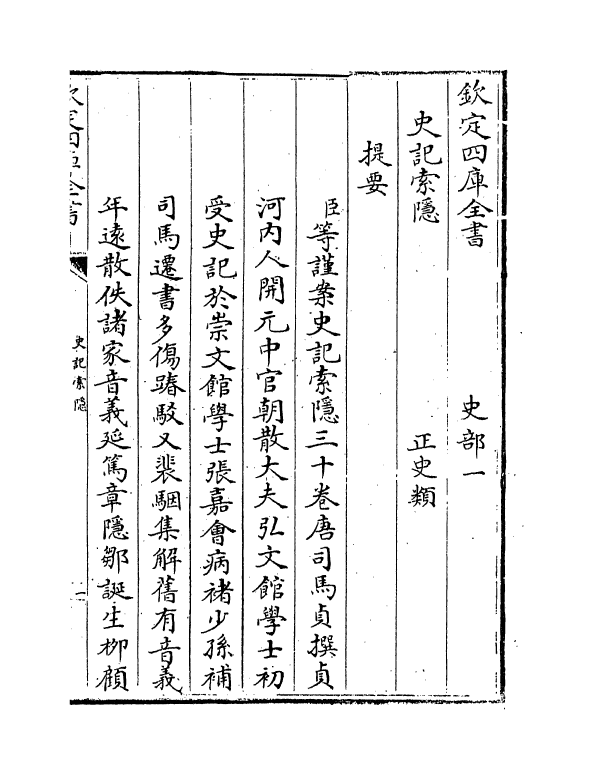 欽定四庫全書 史部一
史記索隱 正史類
提要
臣等謹案史記索隱三十卷唐司馬貞撰貞
河内人開元中官朝散大夫弘文館學士初
受史記於崇文館學士張嘉會病褚少孫補
司馬遷書多傷踳駁又裴駰集解舊有音義
年遠散佚諸家音義延篤章隱鄒誕生柳顧
史記索隱
一